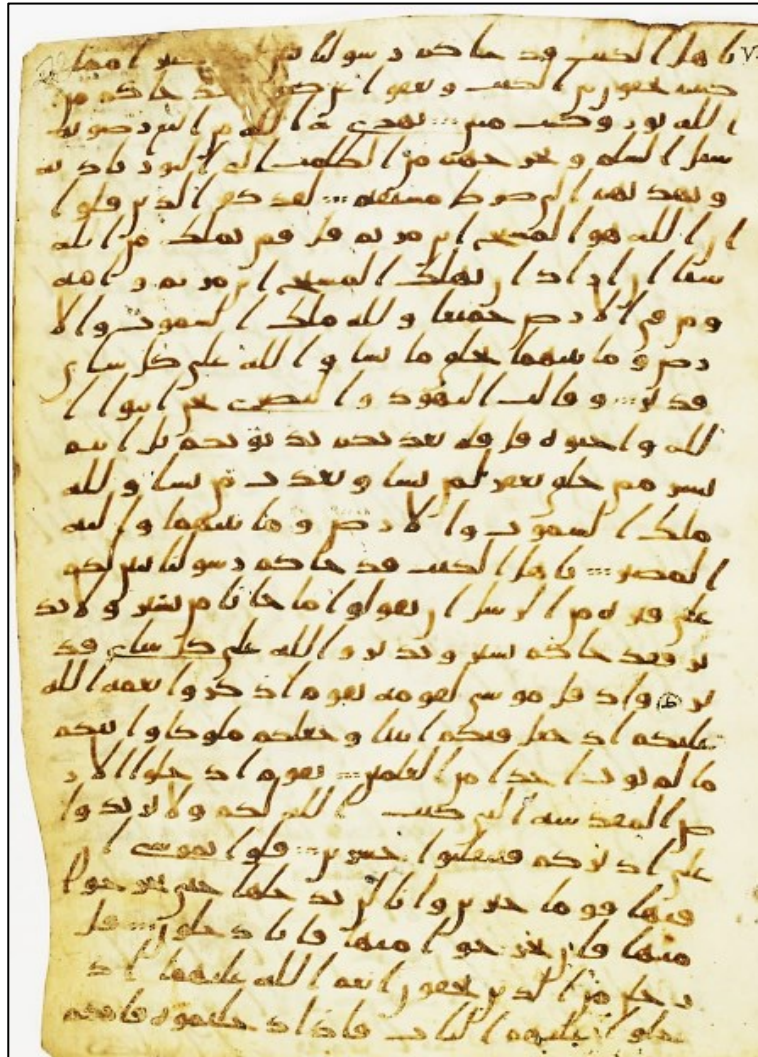 يا هل الكتب قد جاكم رسولنا يبين كثيرا مما
كنتم تخفون من الكتب ويعفوا عن كثير قد جاكم من
الله نور وكتب مبين يهدي به الله من اتبع رضونه
سبل السلم ويخرجهم من الظلمت الى النور باذنه
ويهديهم الى صرط مستقيم لقد كفر الذين قلوا
ان الله هو المسيح ابن مريم قل فمن يملك من الله
شيا ان اراد ان يهلك المسيح ابن مريم وامه
ومن في الارض جميعا ولله ملك السموت والا
رض وما بينهما يخلق ما يشا والله على كل شاي
قدير وقالت اليهود والنصرى نحن ابنوا ا
لله واحبوه قل فلم يعذبكم بذنوبكم بل انتم
بشر ممن خلق يغفر لمن يشا ويعذب من يشا ولله
ملك السموت والارض وما بينهما واليه
المصير يا هل الكتب قد جاكم رسولنا يبين لكم
على فتره من الرسل ان تقولوا ما جانا من بشير ولا نذ
ير فقد جاكم بشير ونذير والله على كل شاي قد
ير واذ قل موسى لقومه يقوم اذكروا نعمه الله
عليكم اذ جعل فيكم انبيا وجعلكم ملوكا واتيكم
ما لم يوت احدا من العلمين يقوم ادخلوا الار
ض المقدسه التي كتب الله لكم ولا ترتدوا
على ادبركم فتنقلبوا خسرين قلوا يموسى ان
فيها قوما جبرين وانا لن ندخلها حتى يخرجوا
منها فان يخرجوا منها فانا دخلون قل
رجلن من الذين يخفون انعم الله عليهما اد
خلوا عليهم الباب فاذا دخلتموه فانكم